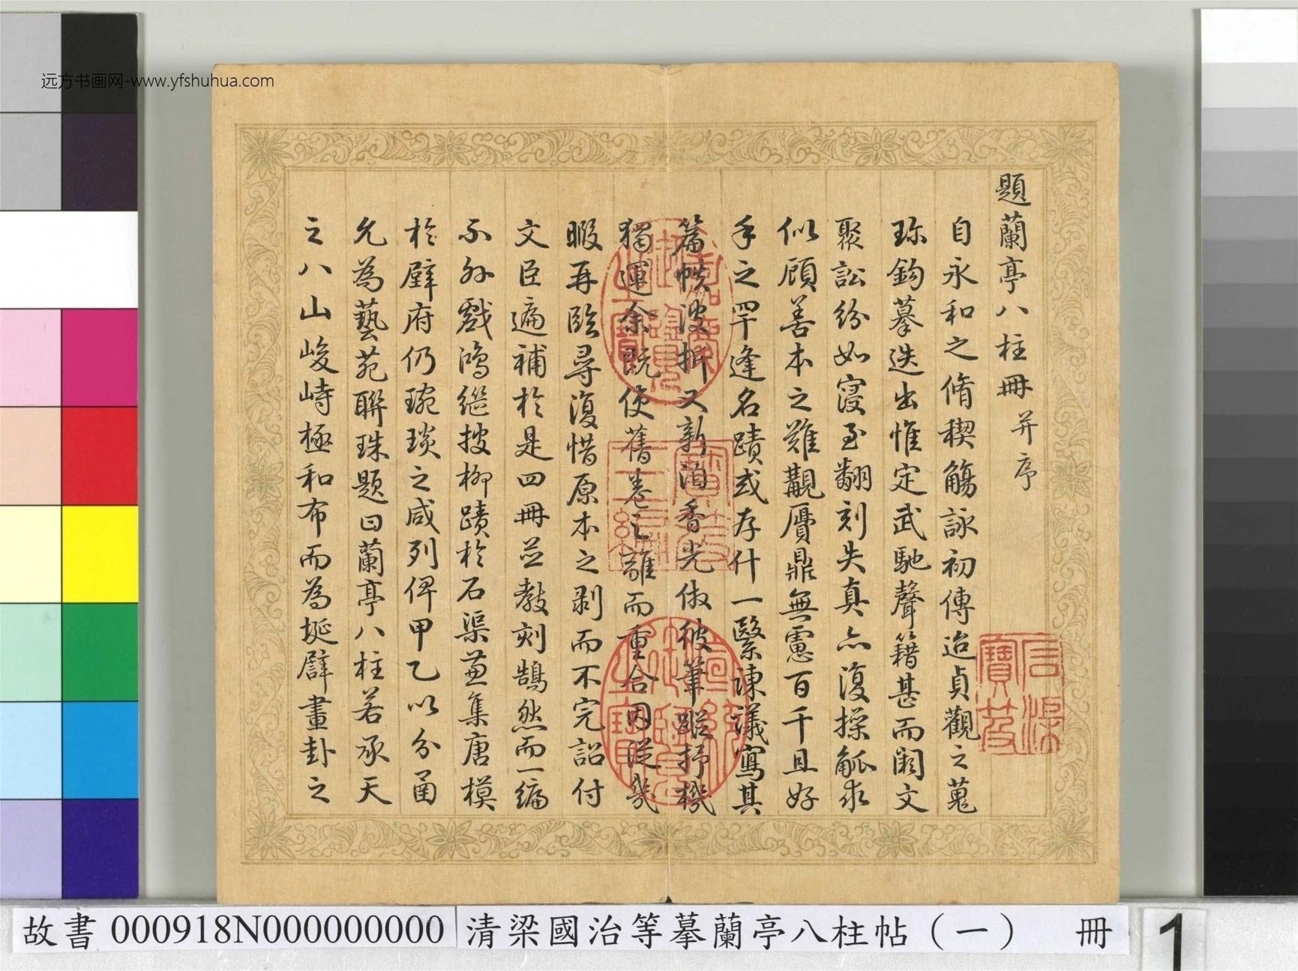 远方书画网-www.yfshuhua.com
題蘭亭八柱冊并序
自永和之脩禊觴詠初傳迨貞觀之蒐
珎鉤摹迭出惟定武馳聲籍甚而闕文
聚訟紛如寖至翻刻失真亦復操觚求
似顧善本之難覯贗鼎無慮百千且好
手之罕逢名蹟或存什一緊諫議寫其
篇帙波折又新洎香光倣彼筆蹤抒機
獨運余既使舊卷之離而重合因從幾
暇再臨尋復惜原本之剥而不完詔付
文臣遍補於是四冊並教刻鵠然而一編
不外戲鴻繼搜柳蹟於石渠兼集唐模
於壁府仍琬琰之咸列俾甲乙以分函
允為藝苑聯珠題曰蘭亭八柱若承天
之八山峻峙極和布而為埏壁畫卦之
五福五代堂古稀天子寶
八徵耄念之寶
故書 000918N000000000 清梁國治等摹蘭亭八柱帖（一） 冊
1